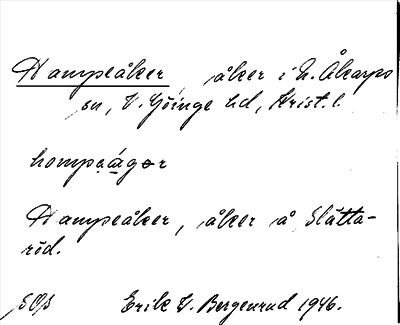 Hampeåker, åker i N. Åkarps
sn, V. Göinge hd, Krist. l.
hompeågər
Hampeåker, åker å Slätta-
röd.
Erik V. Bergenrud 1946.